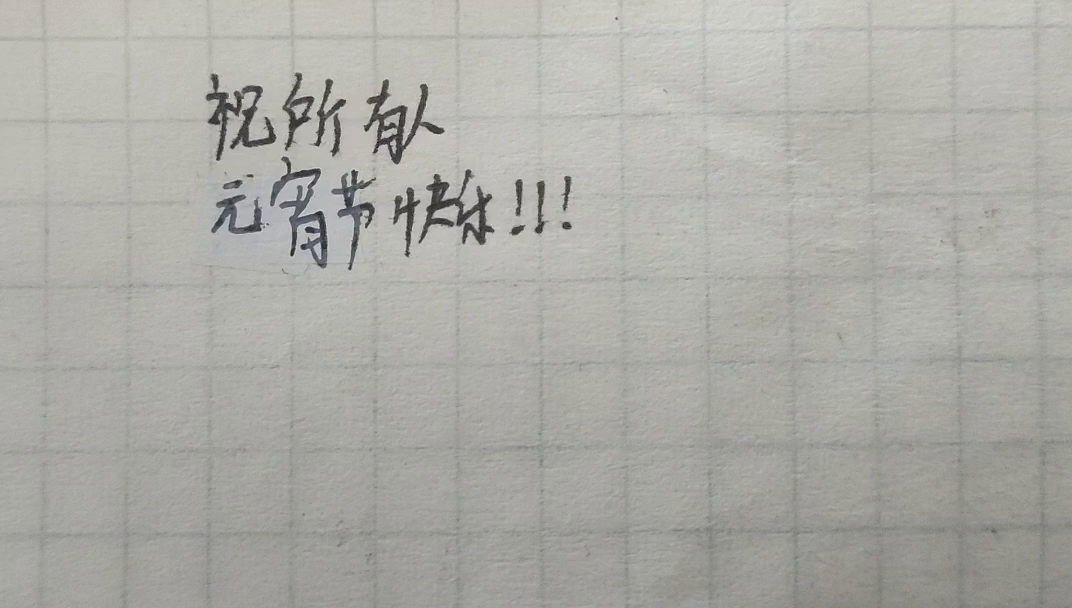 祝所有人
元宵节快乐!!!